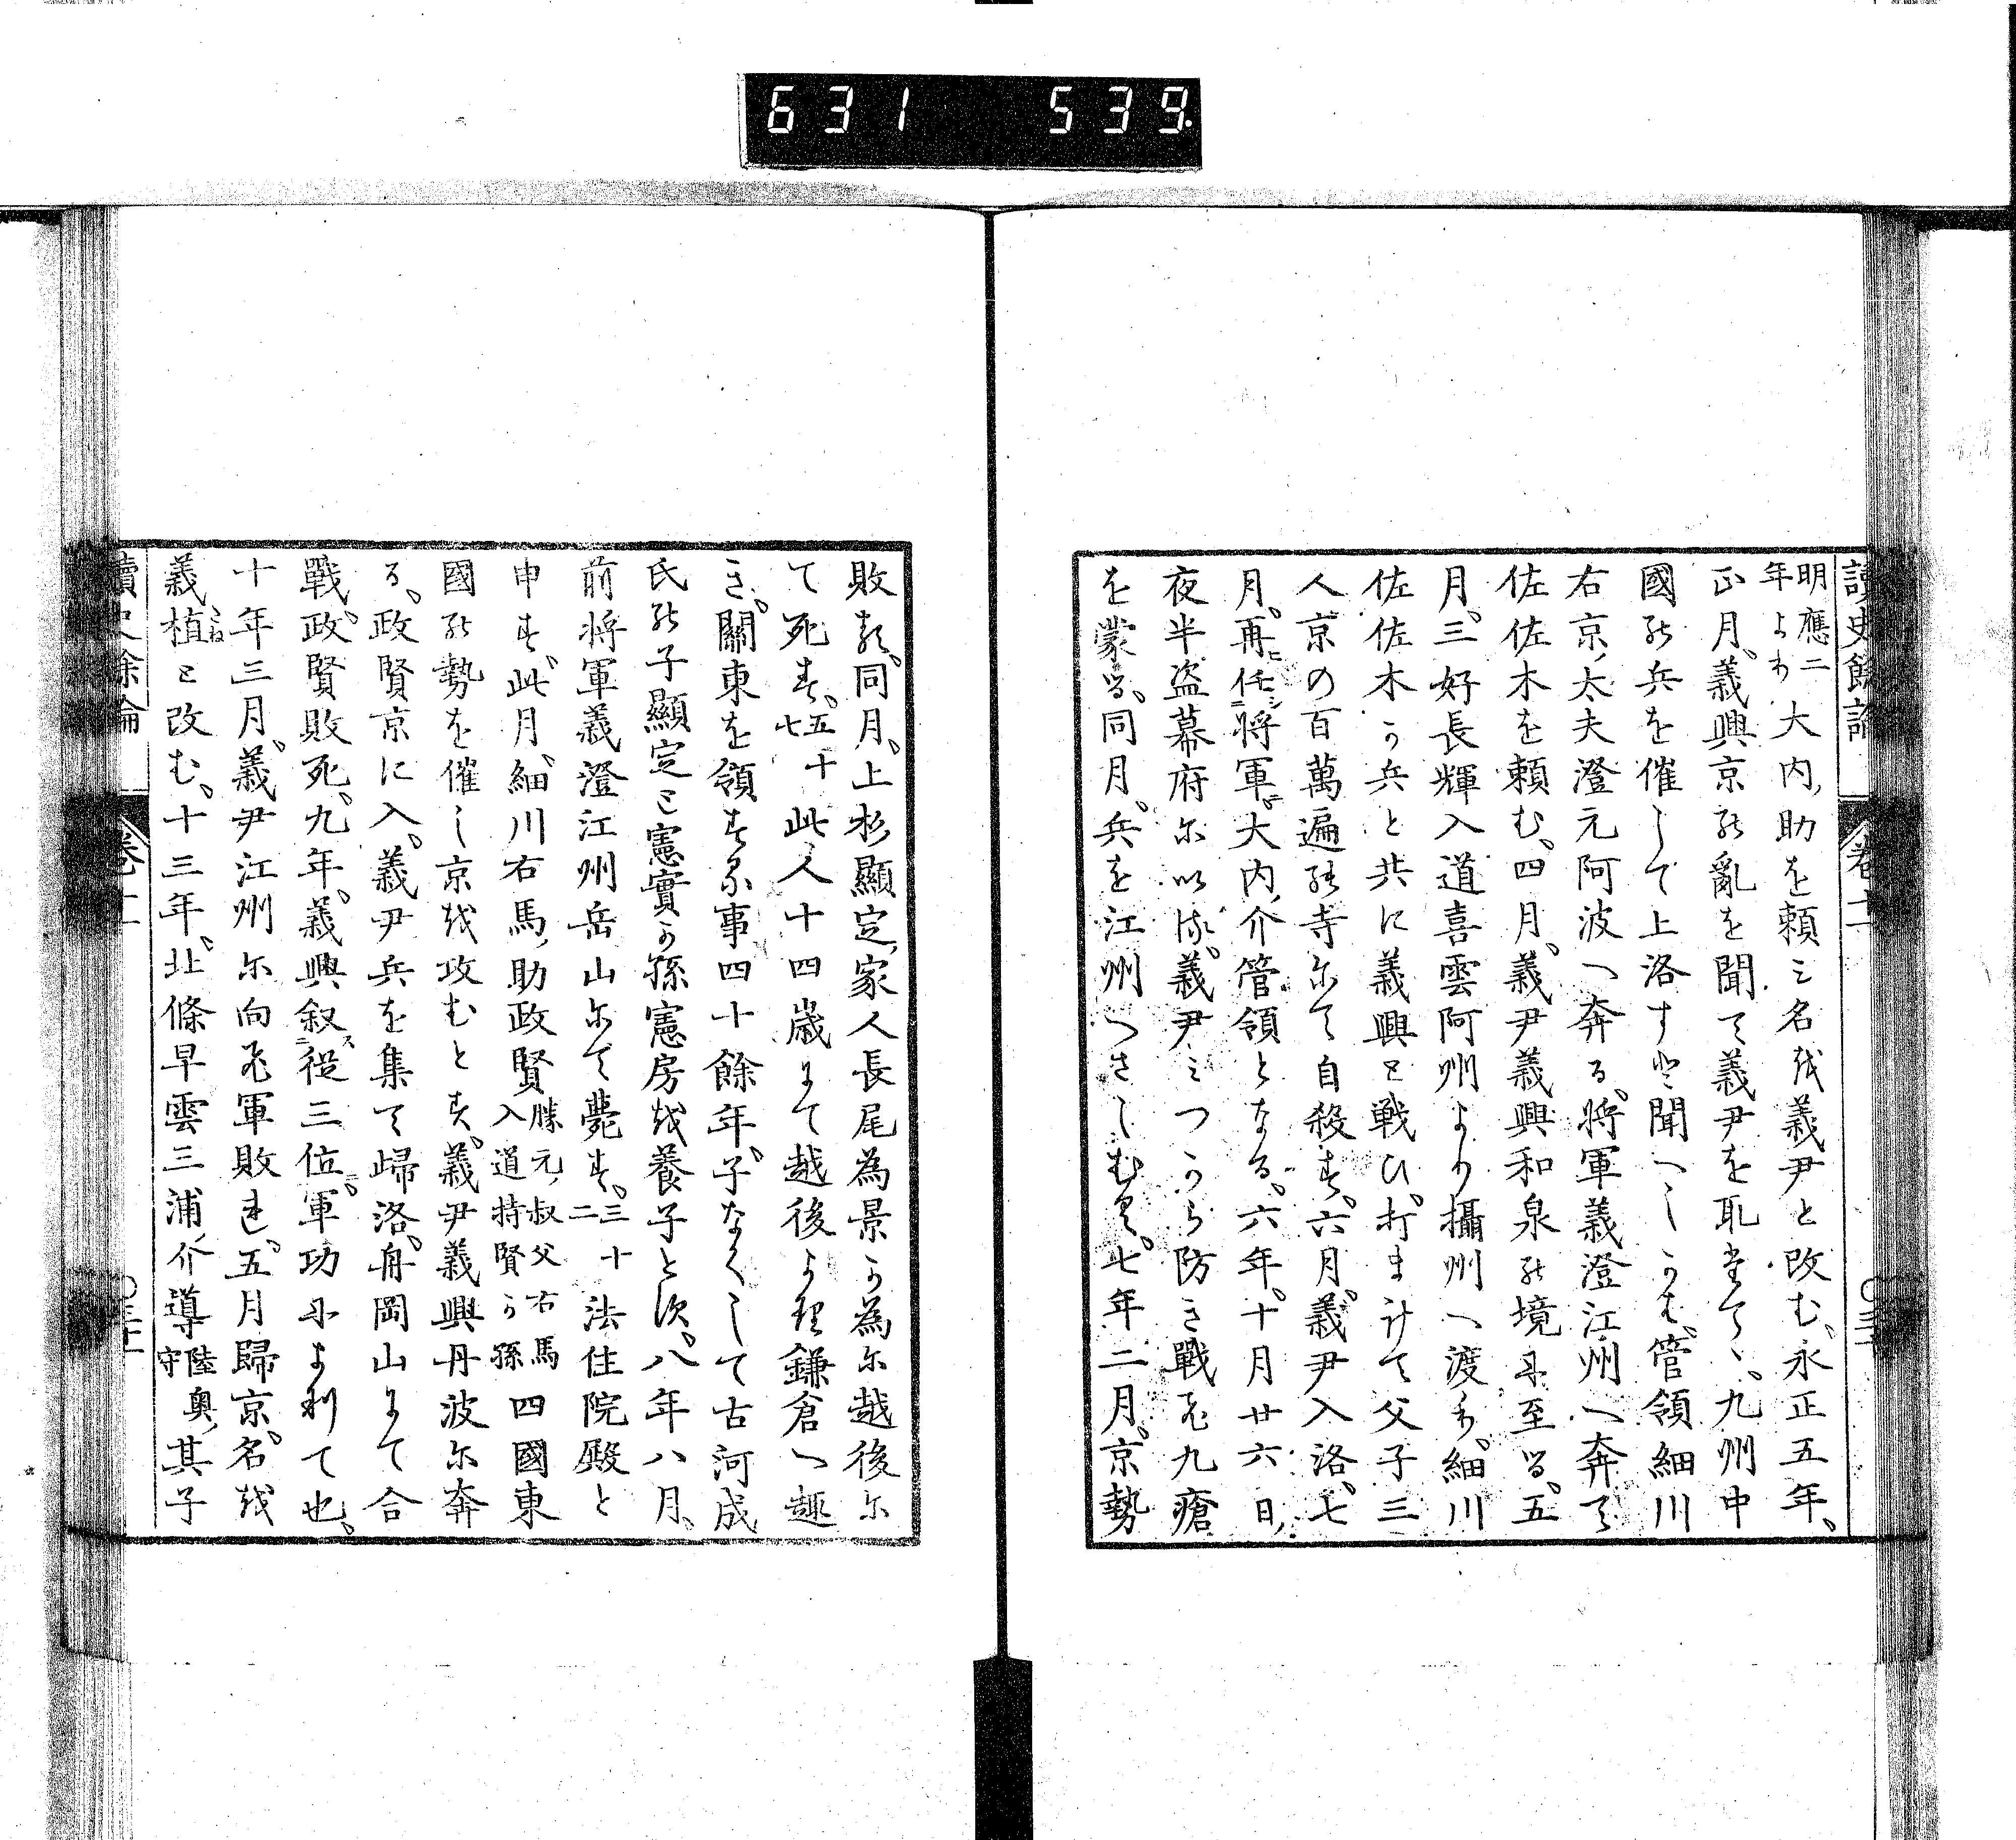 631 539.
讀史餘論
卷十一
明應二年より大内助を頼ミ名を義尹と改む永正五年
正月義興京の亂を聞て義尹を取立てゝ九州中
國の兵を催して上洛すと聞へしかは管領細川
右京大夫澄元阿波へ奔る將軍義澄江州へ奔て
佐佐木を頼む四月義尹義興和泉の境に至る五
月三好長輝入道喜雲阿州より攝州へ渡り細川
佐佐木か兵と共に義興と戰ひ打まけて父子三
人京の百萬遍の寺にて自殺す六月義尹入洛七
月再任將軍大内介管領となる六年十月廿六日
夜半盗幕府に以る義尹ミつから防き戰ひ九瘡
を蒙る同月兵を江州へさしむる七年二月京勢
敗る同月上杉顯定家人長尾為景か為に越後に
て死す五十七此人十四歳にて越後より鎌倉へ趣
き關東を領する事四十餘年子なくして古河成
氏の子顯定と憲實か孫憲房を養子とす八年八月
前將軍義澄江州岳山にて薨す三十二法住院殿と
申す此月細川右馬助政賢勝元叔父右馬入道持賢か孫四國東
國の勢を催し京を攻むとす義尹義興丹波に奔
る政賢京に入義尹兵を集て歸洛舟岡山にて合
戰政賢敗死九年義興叙從三位軍功によりて也
十年三月義尹江州に向ひ軍敗れ五月歸京名を
義植と改む十三年北條早雲三浦介導陸奥守其子
讀史餘論
卷十一